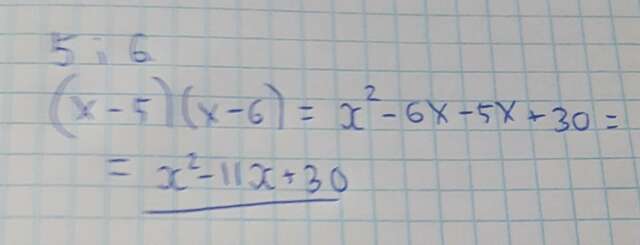 5 ; 6
(x-5)(x-6) = x²-6x-5x+30=
= x²-11x+30